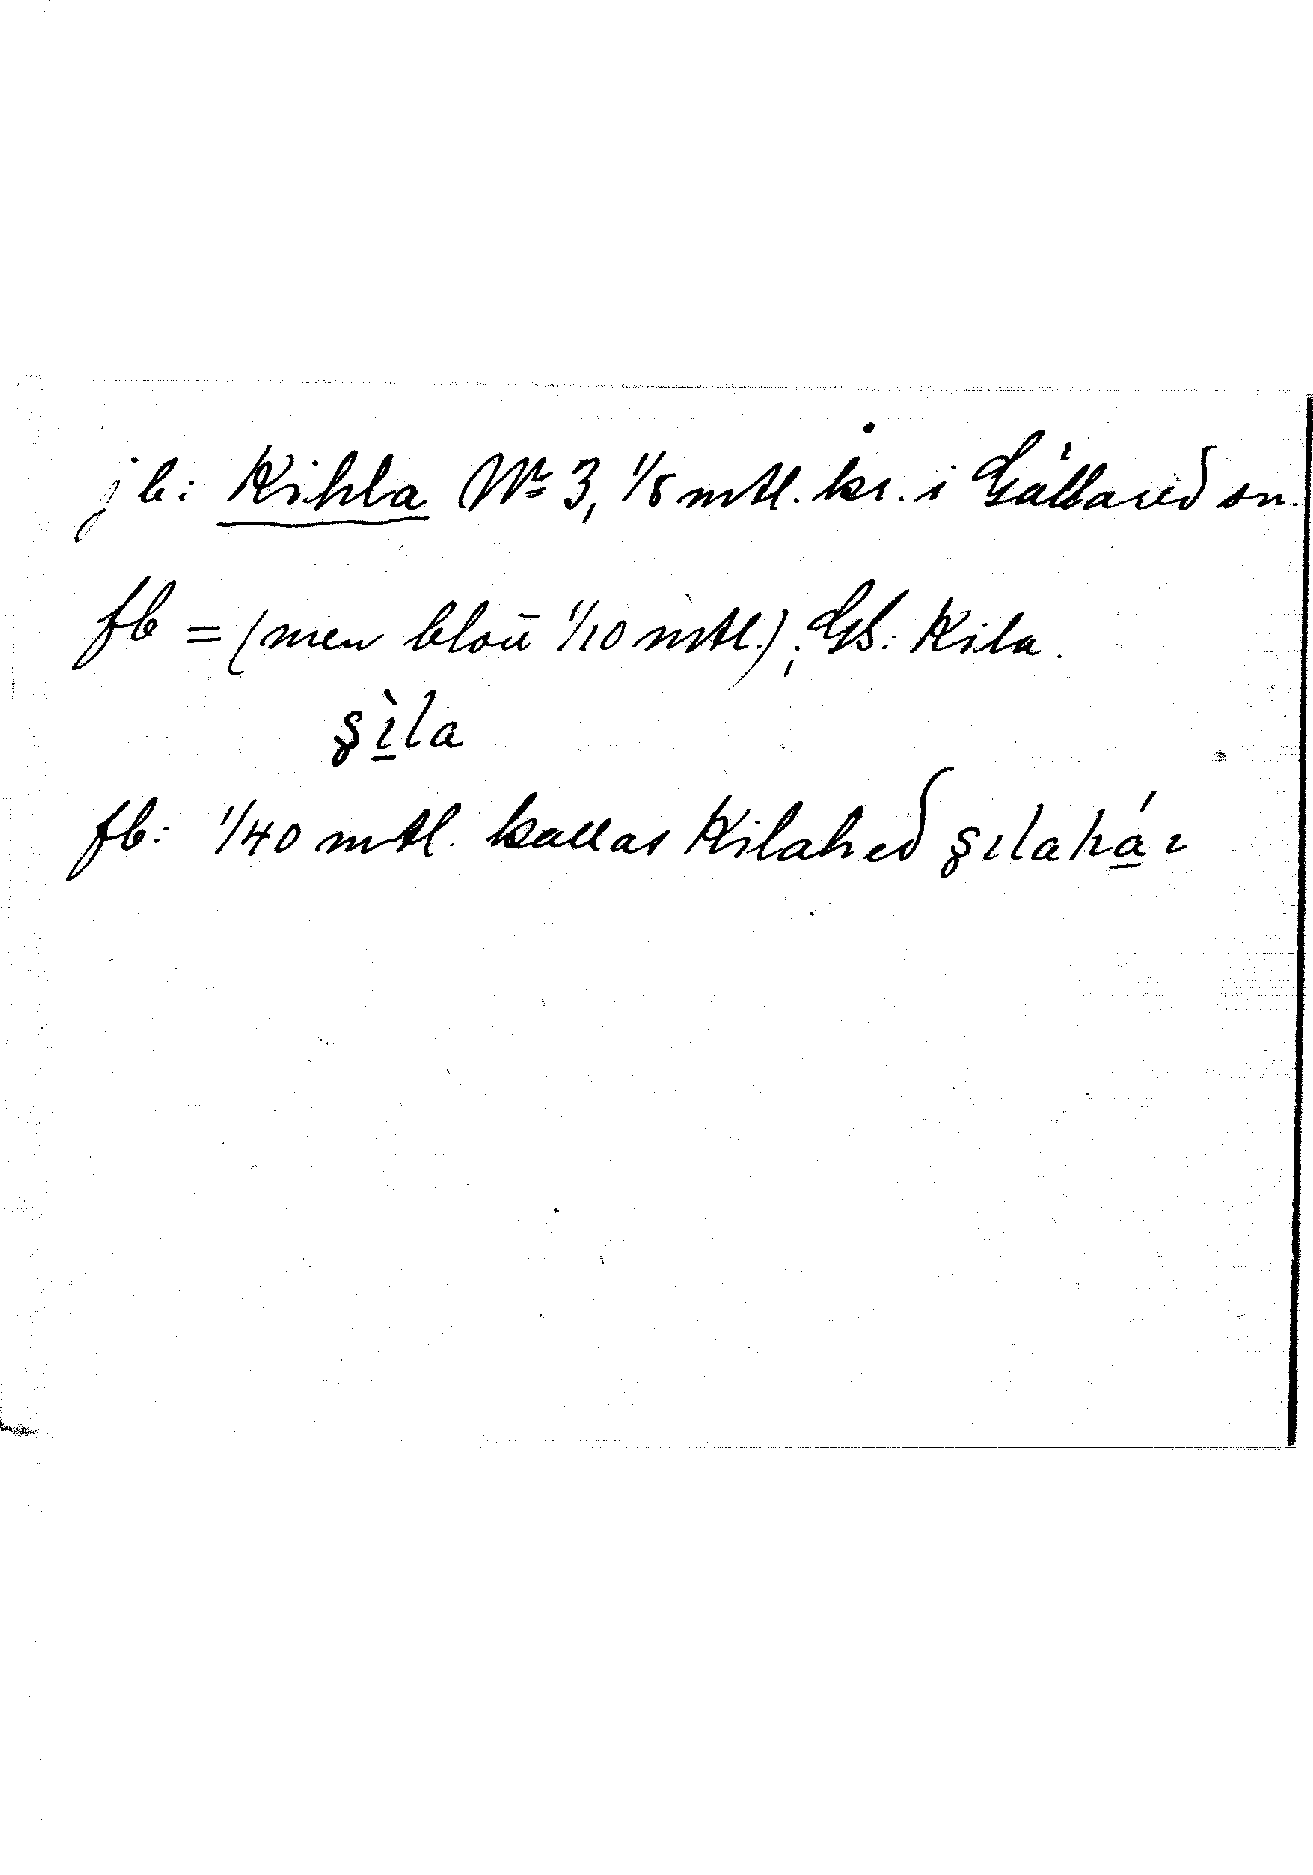 jb: Kihla No 3, 1/8 mtl. kr. i Gällared sn.
fb = (men blott 1/10 mtl.); Gs.: Kila.
ʂìla
fb: 1/40 mtl. kallas Kilahed ʂılahá